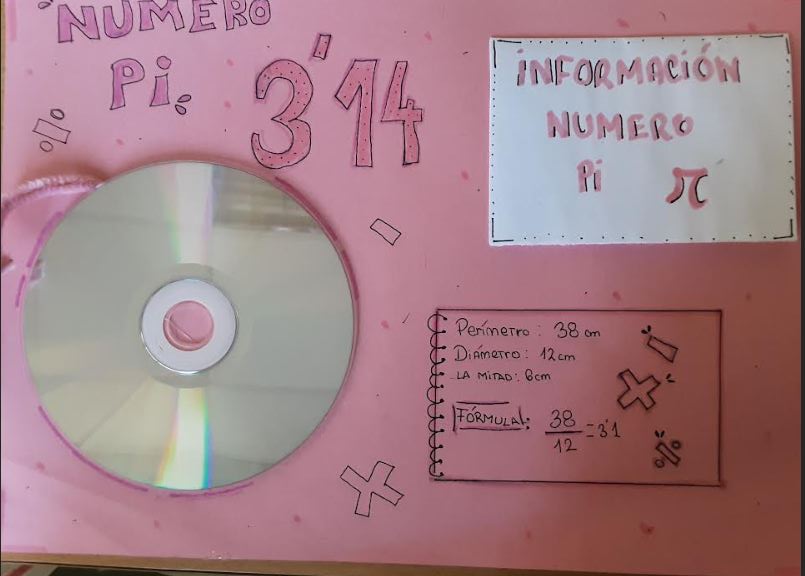 NUMERO
Pi
3'14
INFORMACIÓN
NUMERO
Pi π
Perímetro: 38 cm
Diámetro: 12cm
LA MITAD: 6cm
FÓRMULA: 38
12 = 3'1